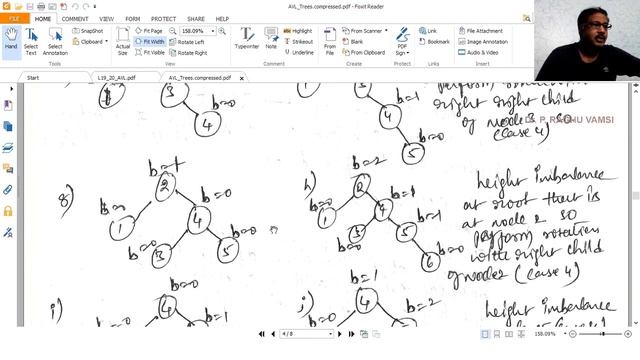 AVL_Trees.compressed.pdf - Foxit Reader
FILE HOME COMMENT VIEW FORM PROTECT SHARE HELP
Hand
Select Text
Select Annotation
SnapShot
Clipboard
Actual Size
Fit Page
Fit Width
Fit Visible
158.09%
Rotate Left
Rotate Right
Typewriter
Note
Highlight
Strikeout
Underline
From Scanner
Blank
From Clipboard
PDF Sign
Link
Bookmark
File Attachment
Image Annotation
Audio & Video
Start L19_20_AVL.pdf AVL_Trees.compressed.pdf
3
b=0
4
b=1
4
b=0
5
right right child
of node 2 so
(case 4)
P. RAGHU VAMSI
g)
b=1
2
b=0
1
4
b=0
3
b=0
5
h)
b=2
2
b=0
1
b=1
4
3
b=0
b=1
5
b=0
6
height imbalance
at root that is
at node 2 so
perform rotation
with right child
of node 2 (case 4)
i)
b=0
4
b=1
j)
b=1
4
b=2
b=0
height imbalance
4 / 8
158.09%